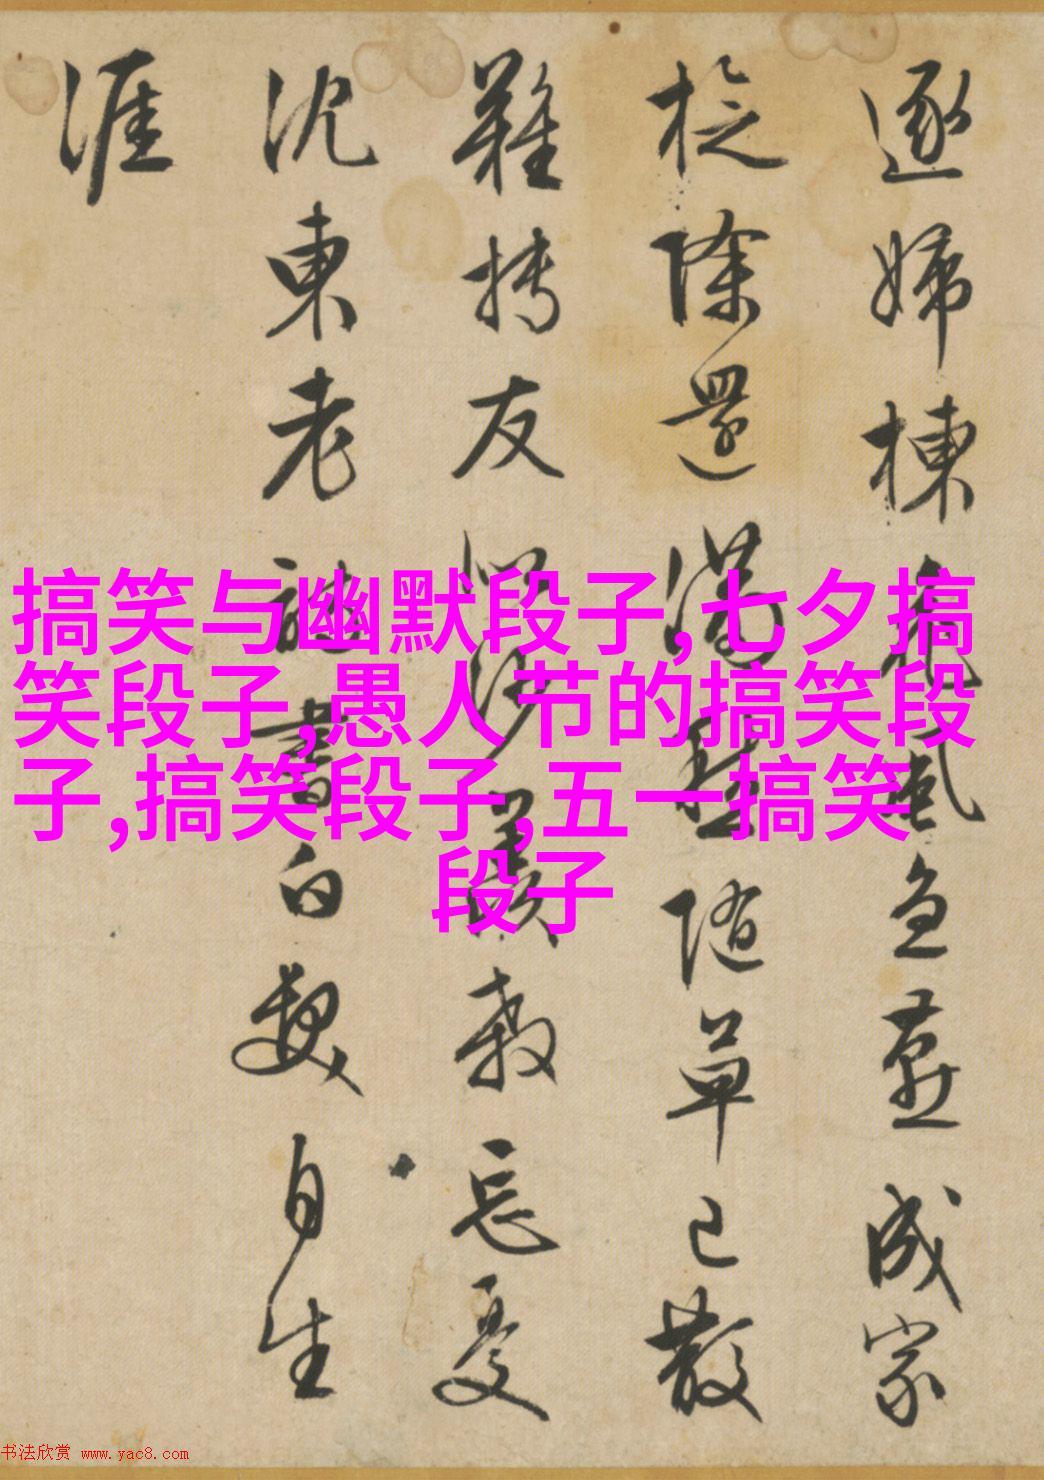 搞笑与幽默段子,七夕搞
笑段子,愚人节的搞笑段
子,搞笑段子,五一搞笑
段子
逐婦棟花風急燕成家
除還滿隨草已散
難摶友沙忘
沈東老書白髮自生
涯
书法欣赏 www.yac8.com